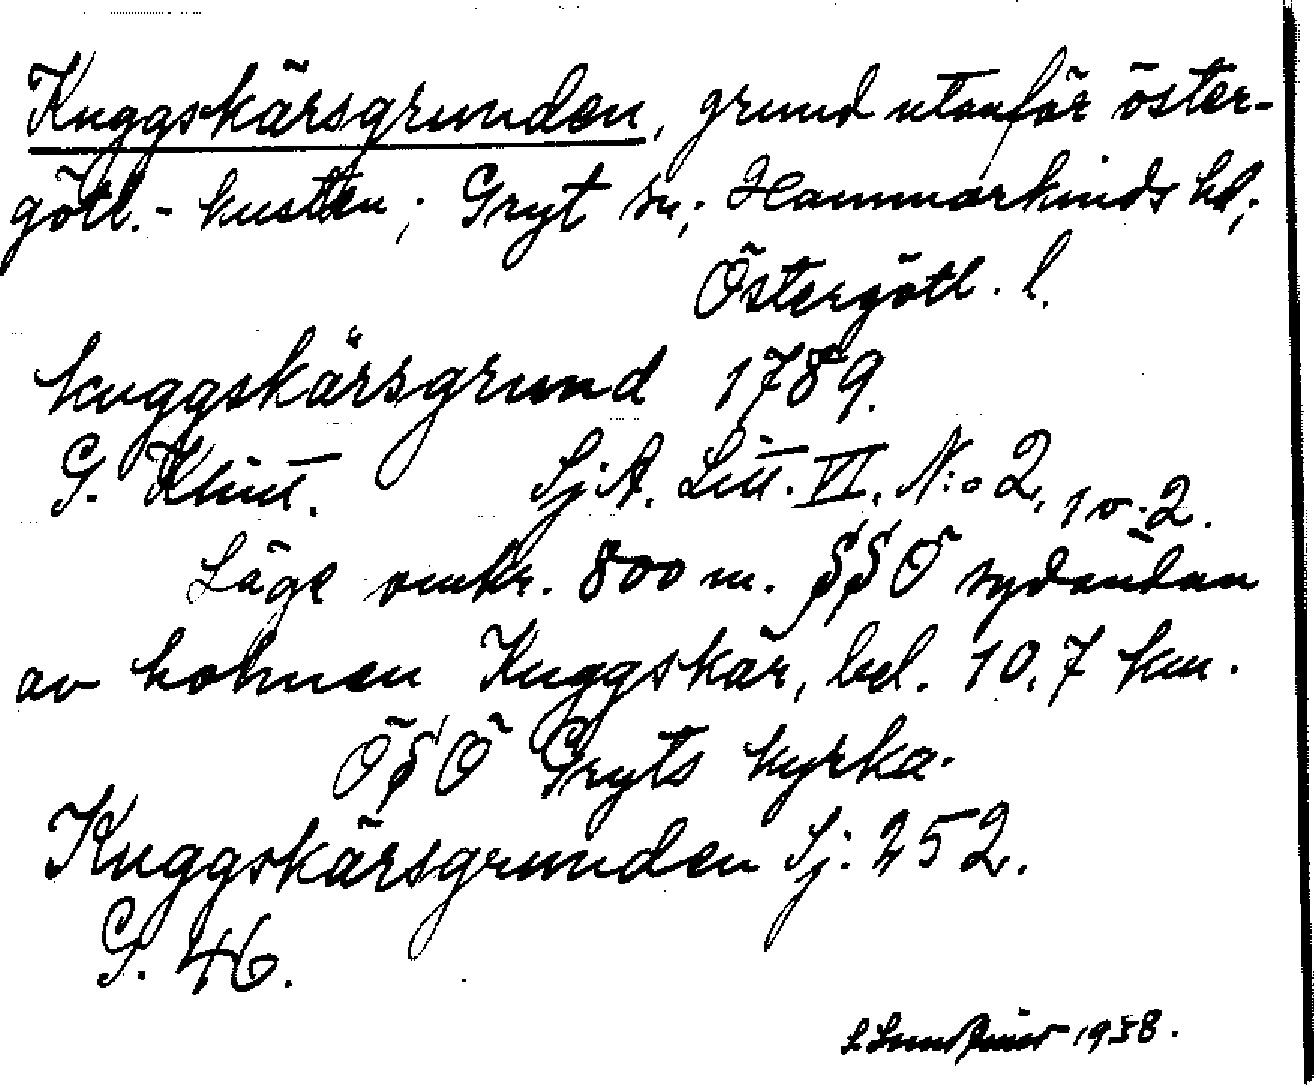 Kuggskärsgrunden, grund utanför öster-
götl.-kusten; Gryt sn; Hammarkinds hd;
Östergötl. l.
kuggskärsgrund 1789.
G. Klint. SjA. Litt. VI. N:o 2, 1 o. 2.
Läge omkr. 800 m. SSO sydändan
av holmen Kuggskär, bel. 10,7 km.
OSO Gryts kyrka.
Kuggskärsgrunden Sj. 252.
G. 46.
1938.